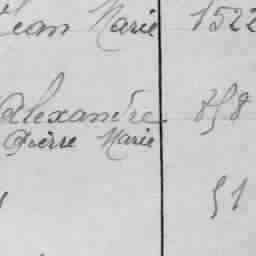 Jean Marie 1522
Alexandre 758
Pierre Marie
51